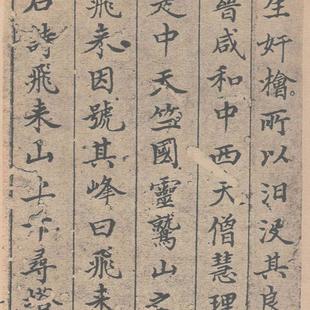 生奸檜所以汨没其良
晉咸和中西天僧慧理
是中天竺國靈鷲山之
飛来因號其峰曰飛来
詩飛来山上千尋塔